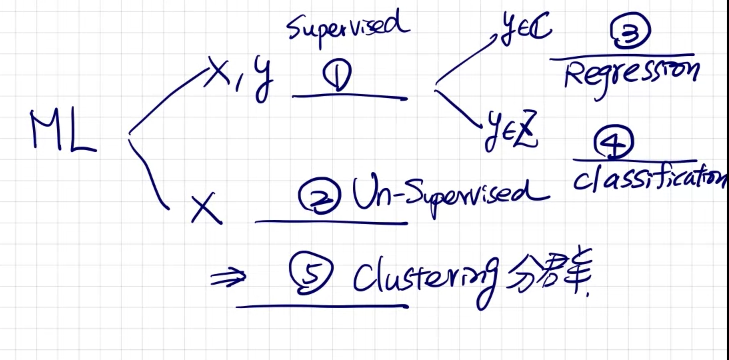 Supervised
ML
X, y ①
y∈C ③
Regression
y∈Z ④
classification
X ② Un-Supervised
⇒ ⑤ Clustering 分群